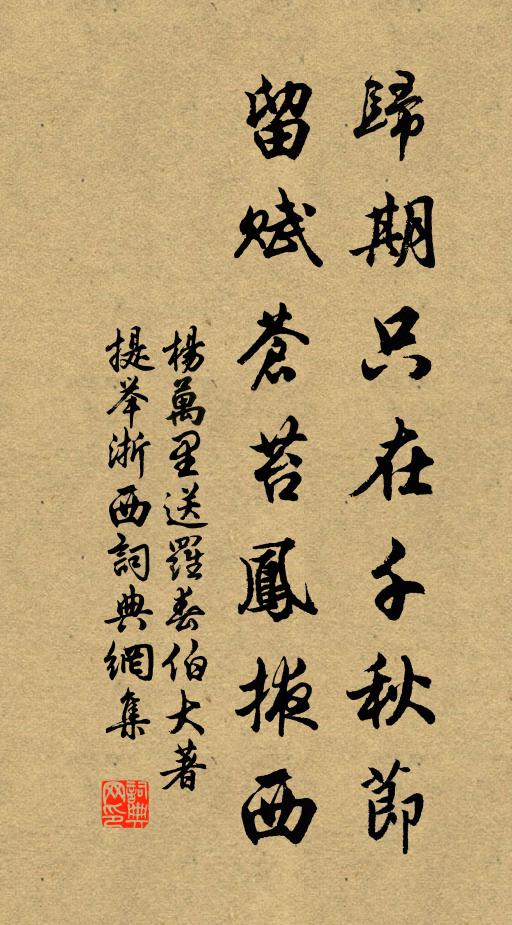 歸期只在千秋節
留賦蒼苔鳳掖西
楊萬里送羅春伯大著
提举浙西詞典網集
詞典网印